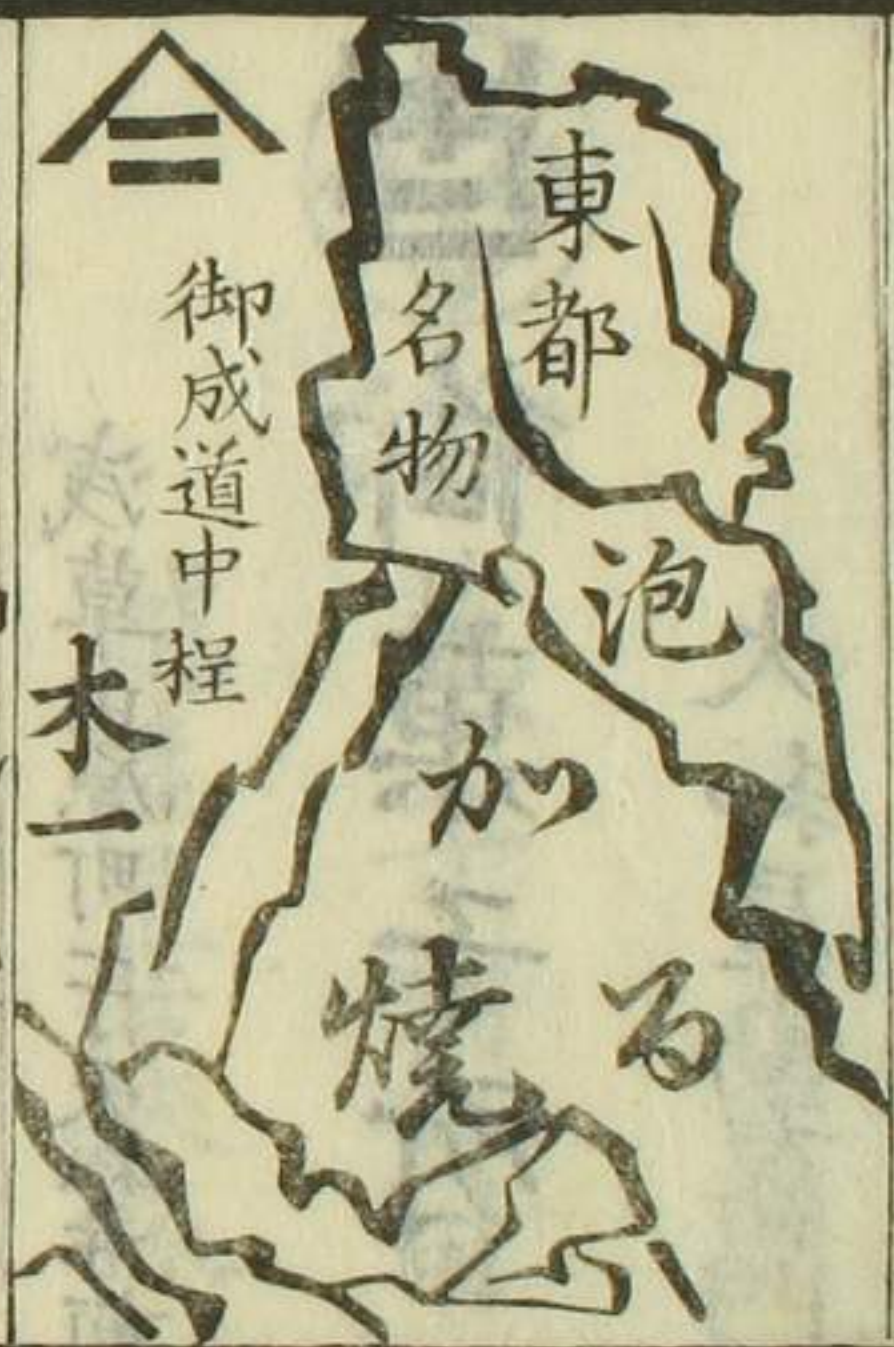 東都
名物
泡
か
る
焼
御成道中程
木一